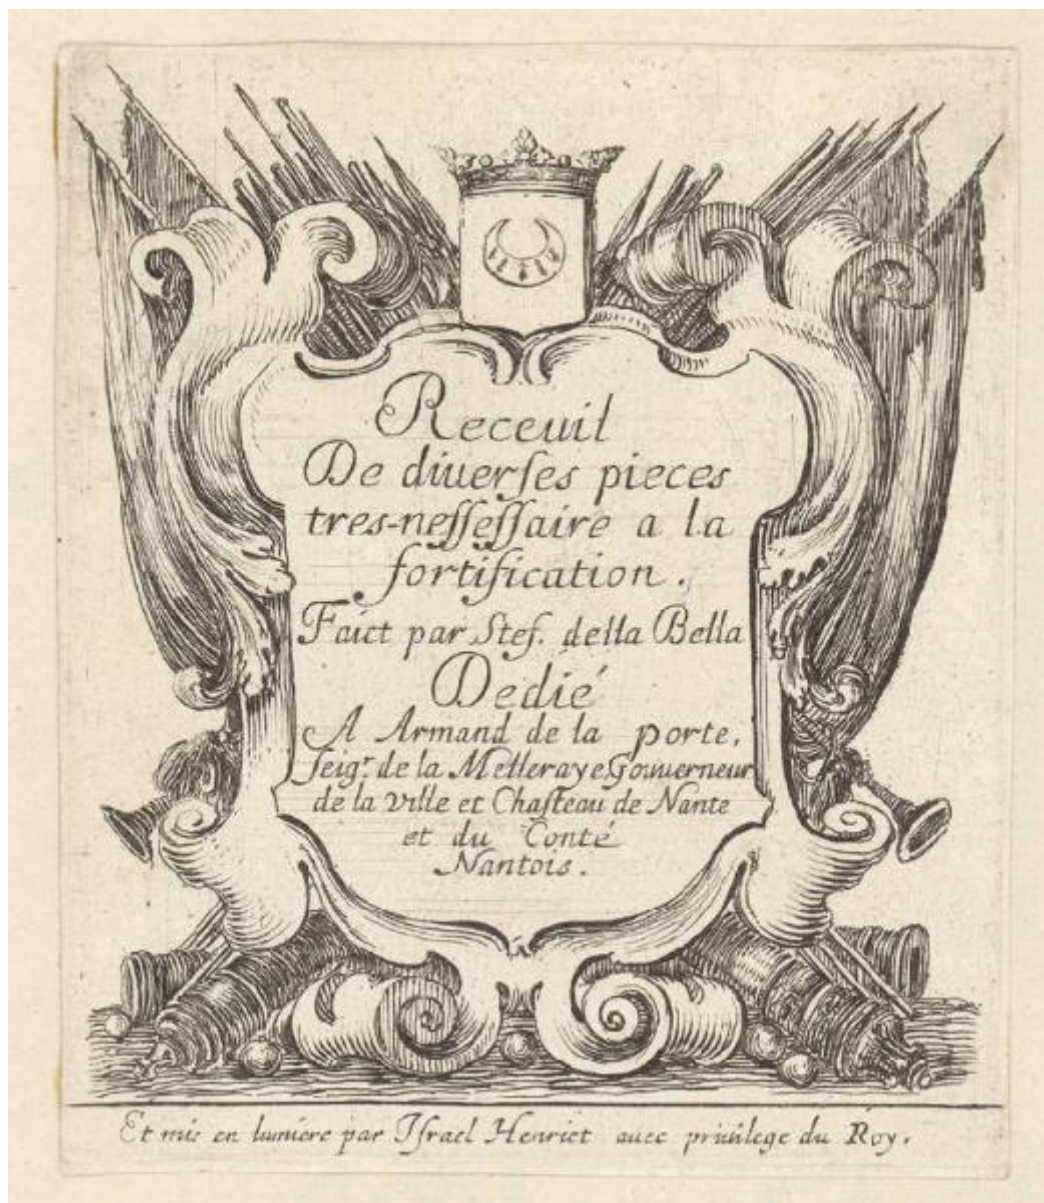 Receuil
De diuerſes pieces
tres-neſſeſſaire a la
fortification.
Faict par Stef. della Bella
Dedié
A Armand de la porte,
ſeigr. de la Melleraye, Gouuerneur
de la ville et Chaſteau de Nante
et du Conté
Nantois.
Et mis en lumiere par Iſrael Henriet auec priuilege du Roy.